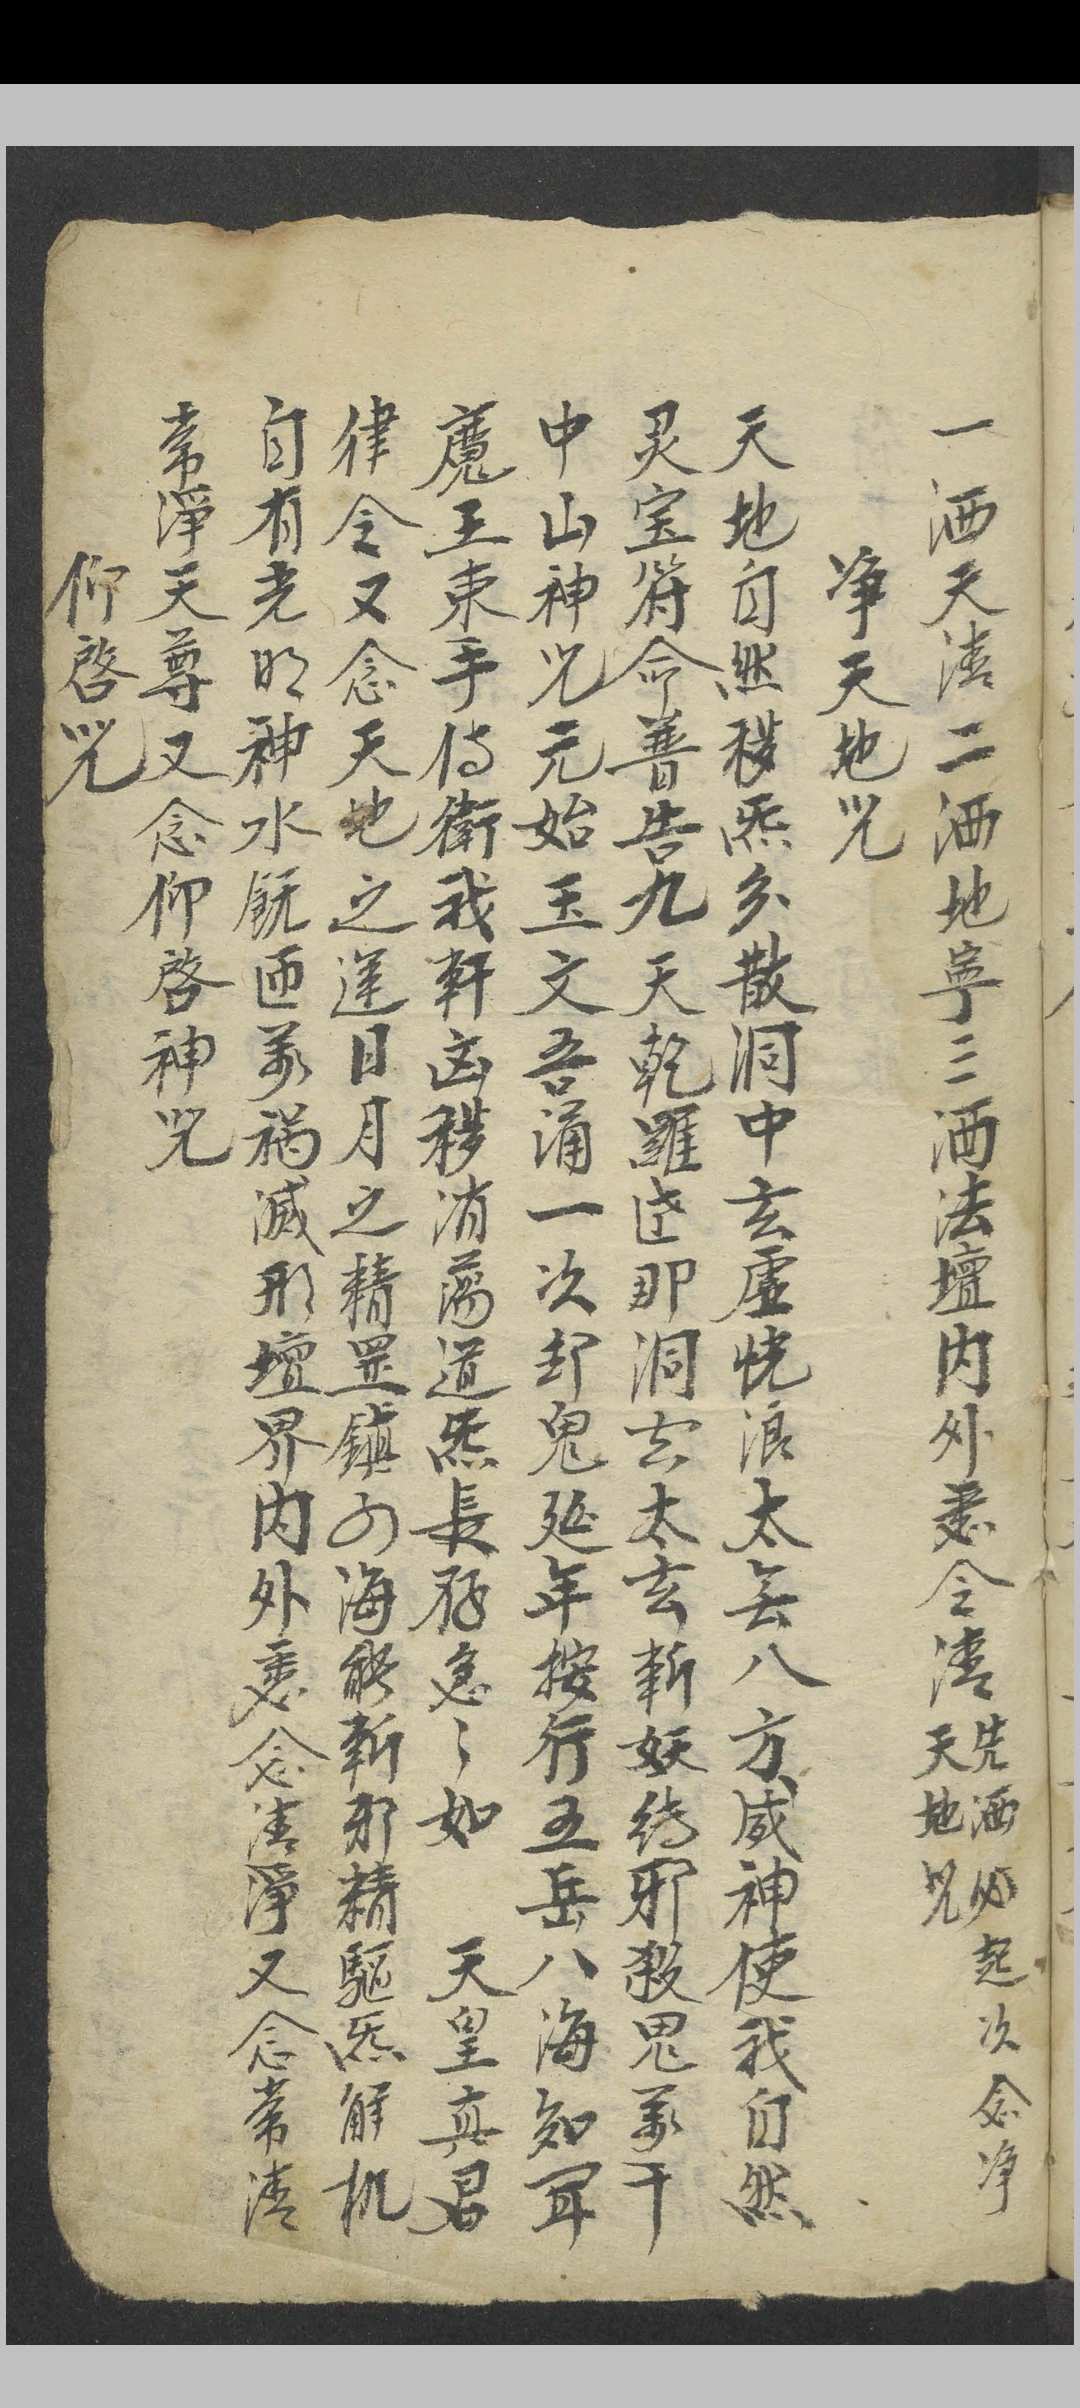 一洒天清二洒地寧三洒法壇内外悉令清先洒必起次念净
天地咒
净天地咒
天地自然秽炁分散洞中玄虚恍浪太玄八方威神使我自然
灵宝符命普告九天乾羅答那洞玄太玄斬妖縛邪殺鬼萬千
中山神咒元始玉文吾誦一次却鬼延年按行五岳八海知聞
魔王束手侍衛我軒凶秽消蕩道炁長存急々如 天皇真君
律令又念天地之 日月之精罡鎮四海能斬邪精驅炁解机
自有光明神水既 萬禍滅形壇界内外悉念清淨又念常清
常淨天尊又念仰啓神咒
仰啓咒